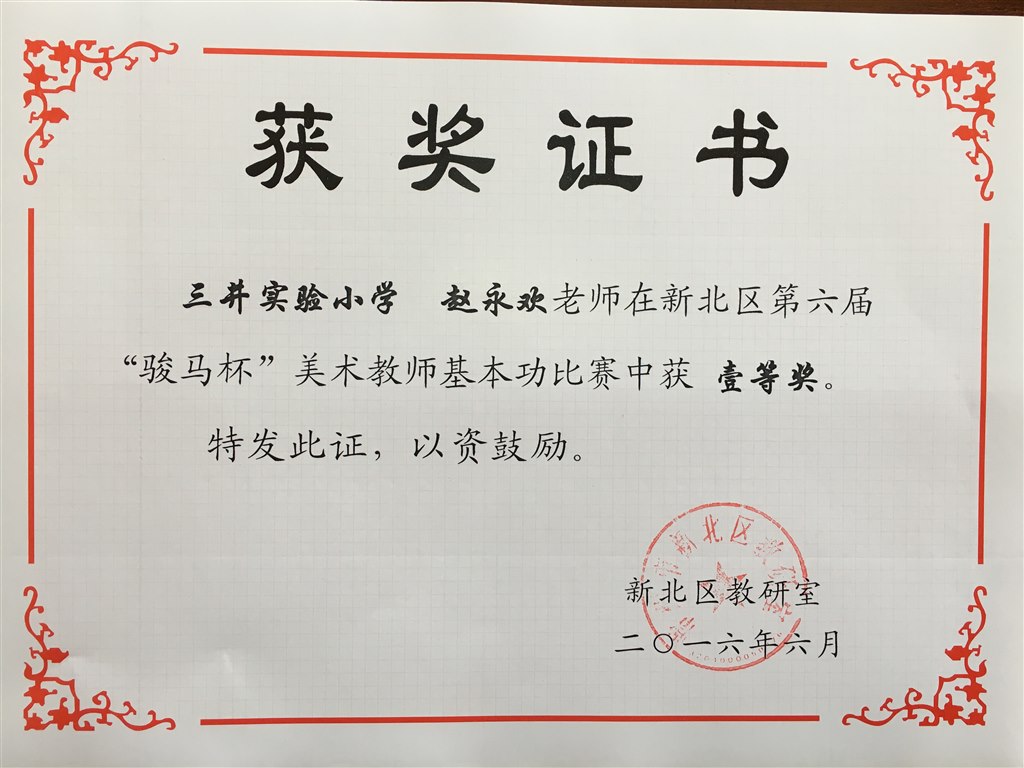 获奖证书
三井实验小学 赵永欢老师在新北区第六届
“骏马杯”美术教师基本功比赛中获 壹等奖。
特发此证，以资鼓励。
新北区教研室
二〇一六年六月